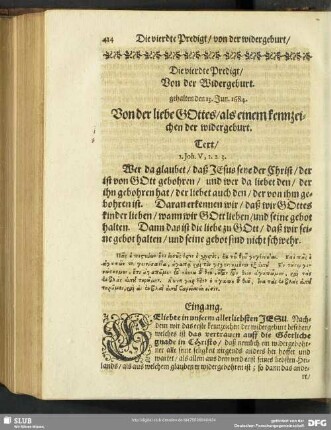 414 Die vierdte Predigt / von der widergeburt /
Die vierdte Predigt /
Von der Widergeburt.
gehalten den 13. Jun. 1684.
Von der liebe GOttes / als einem kennzei-
chen der widergeburt.
Text /
1. Joh. V, 1. 2. 3.
Wer da glaubet / daß JEsus seye der Christ / der
ist von GOtt gebohren / und wer da liebet den / der
ihn gebohren hat / der liebet auch den / der von ihm ge-
bohren ist. Daran erkennen wir / daß wir GOttes
kinder lieben / wann wir GOtt lieben / und seine gebot
halten. Dann das ist die liebe zu GOtt / daß wir sei-
ne gebot halten / und seine gebot sind nicht schwehr.
Eingang.
GEliebte in unserm allerliebsten JESU. Nach-
dem wir das erste kennzeichen der widergeburt besehen /
welches ist das vertrauen auff die Göttliche
gnade in Christo / daß nemlich ein widergebohr-
ner alle seine seligkeit nirgends anders her hoffet und
wartet / als allein aus dem verdienst seines liebsten Hey-
lands / als aus welchem glauben er widergebohren ist; so dann das ande-
re /
SLUB
Wir führen Wissen.
gefördert von der
Deutschen Forschungsgemeinschaft
DFG